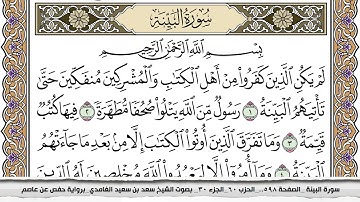 سُورَةُ البَيِّنَةِ
بِسْمِ اللَّهِ الرَّحْمَٰنِ الرَّحِيمِ
لَمْ يَكُنِ الَّذِينَ كَفَرُوا مِنْ أَهْلِ الْكِتَابِ وَالْمُشْرِكِينَ مُنفَكِّينَ حَتَّىٰ
تَأْتِيَهُمُ الْبَيِّنَةُ ١ رَسُولٌ مِّنَ اللَّهِ يَتْلُو صُحُفًا مُّطَهَّرَةً ٢ فِيهَا كُتُبٌ
قَيِّمَةٌ ٣ وَمَا تَفَرَّقَ الَّذِينَ أُوتُوا الْكِتَابَ إِلَّا مِن بَعْدِ مَا جَاءَتْهُمُ
الْبَيِّنَةُ ٤ وَمَا أُمِرُوا إِلَّا لِيَعْبُدُوا اللَّهَ مُخْلِصِينَ لَهُ الدِّينَ
سورة البينة ..الصفحة ٥٩٨... الحزب ٦٠..الجزء ٣٠.. بصوت الشيخ سعد بن سعيد الغامدي ..برواية حفص عن عاصم